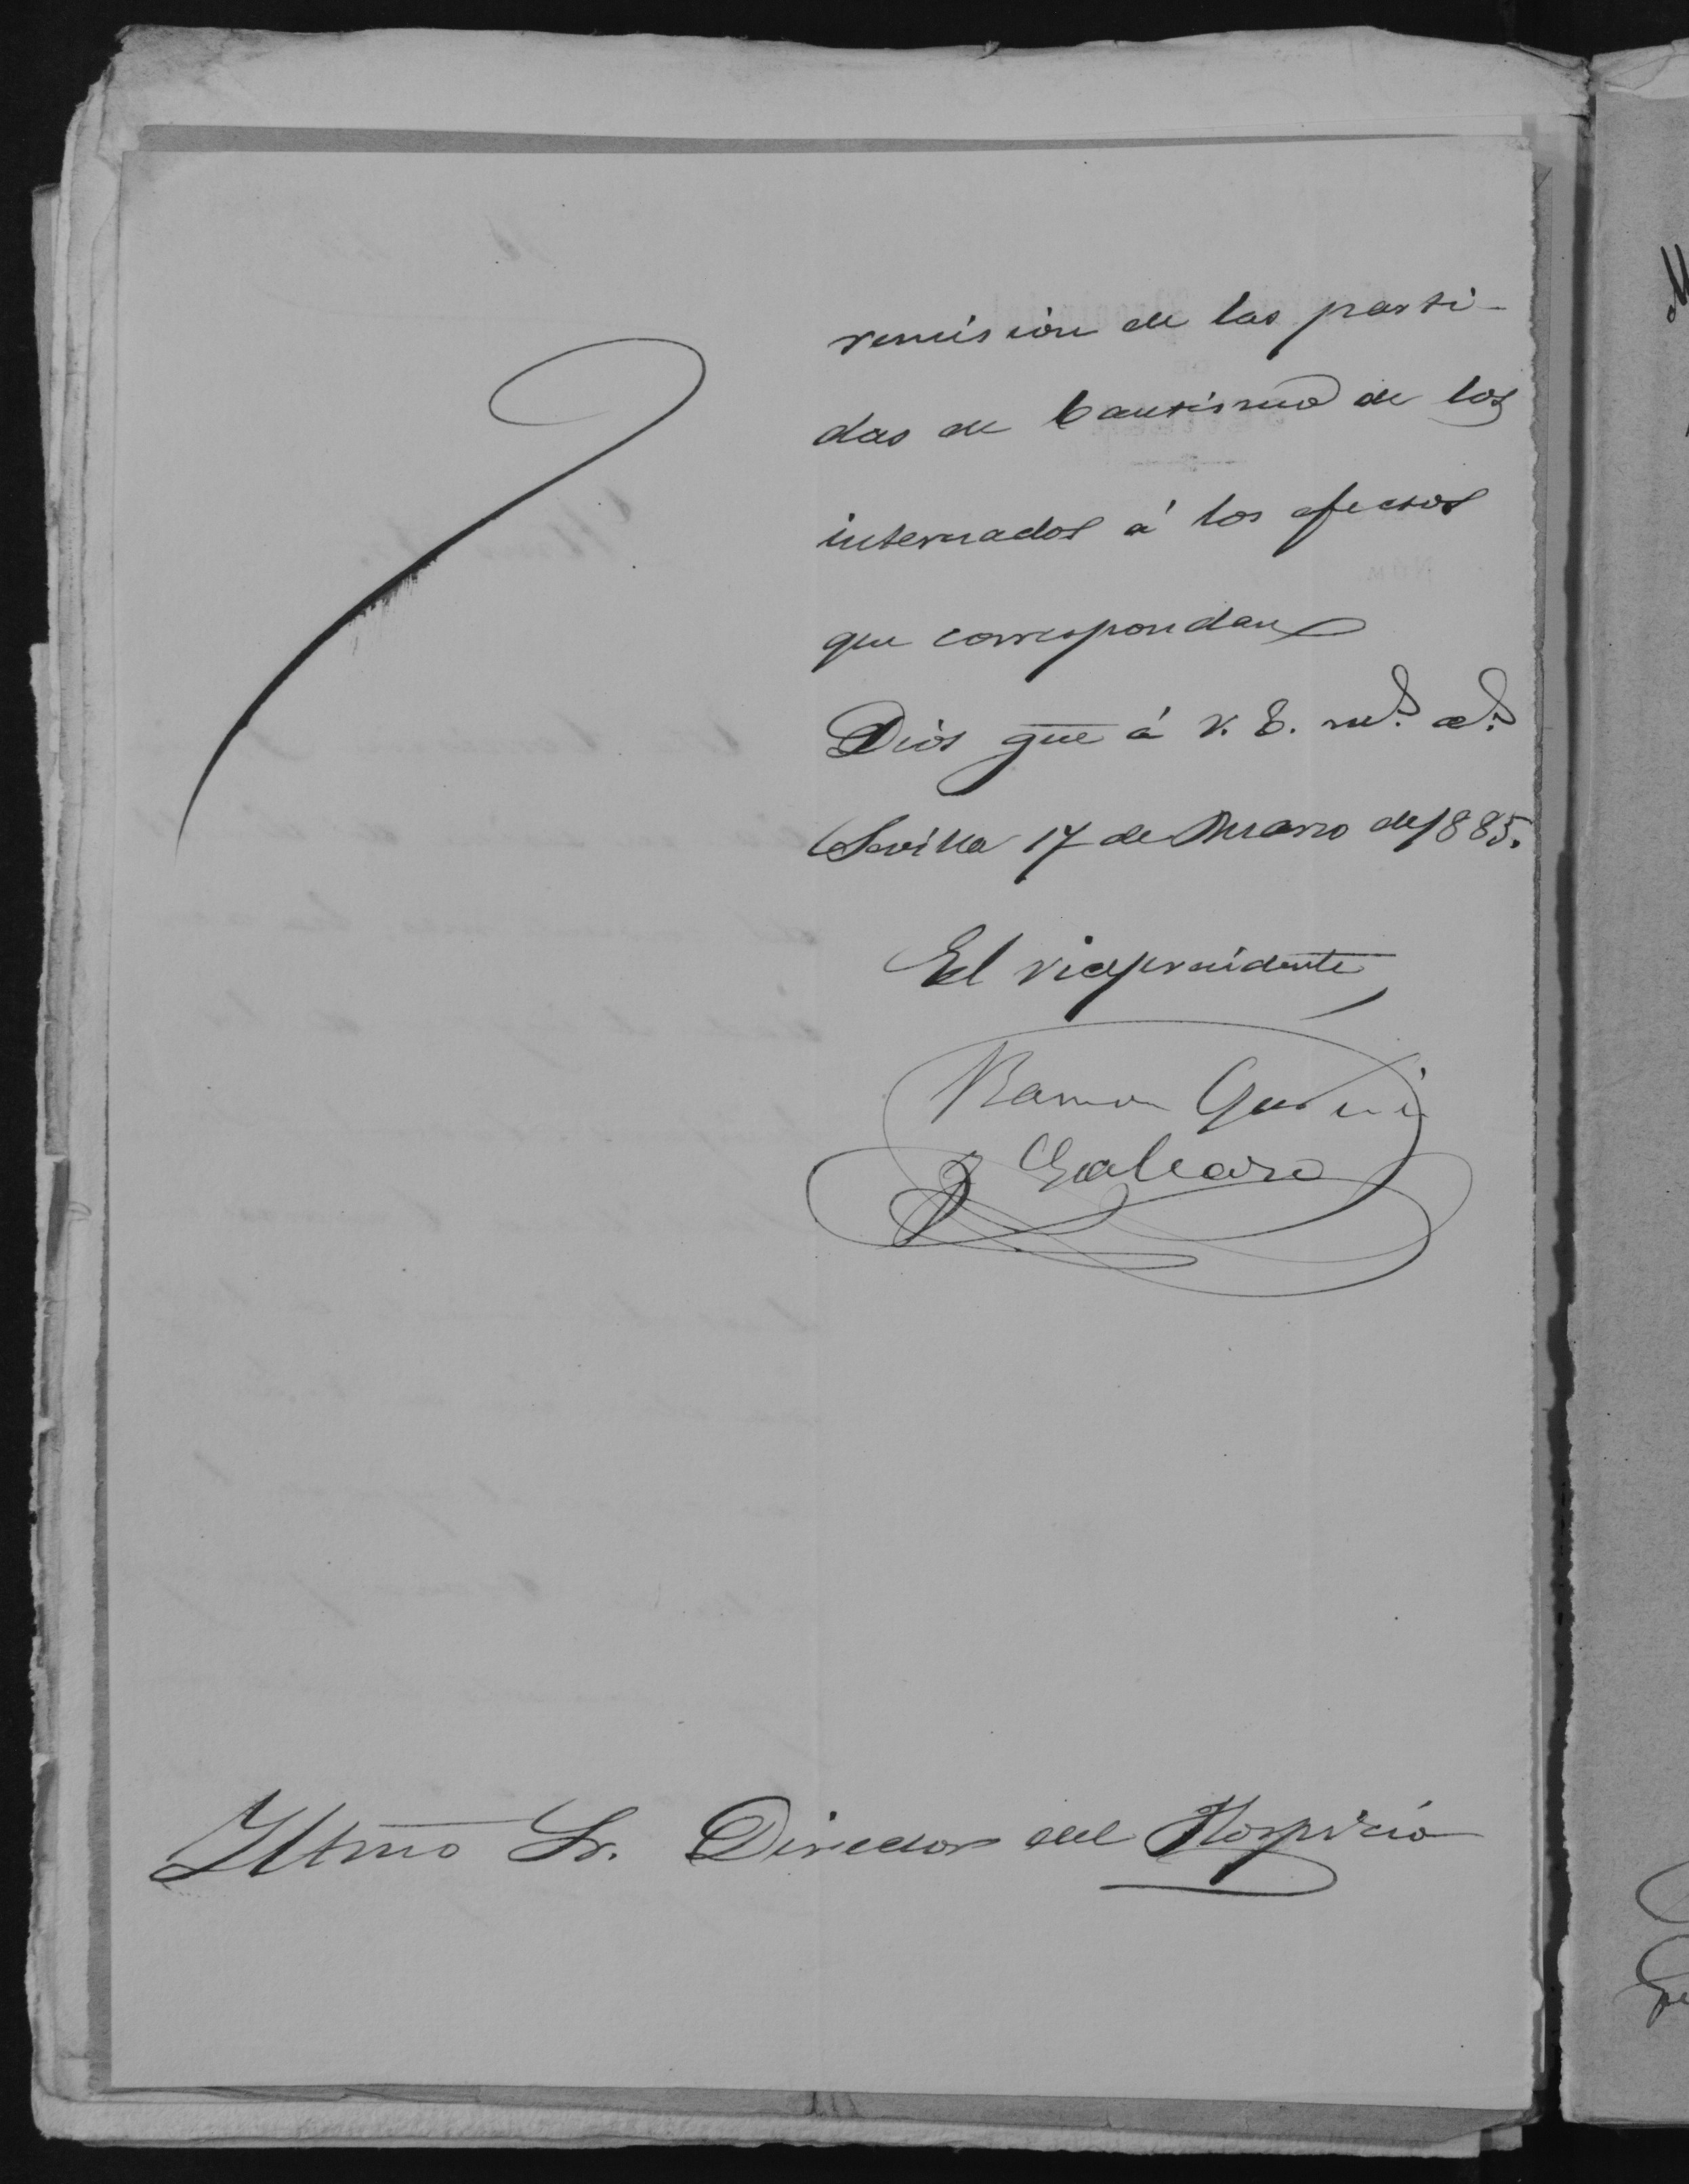 remision de las parti-
das de bautismo de los
internados á los efectos
que correspondan
Dios gue á V. E. ms. as.
Sevilla 17 de Marzo de 1885.
El vicepresidente
Ramon
Iltmo Sr. Director del Hospicio